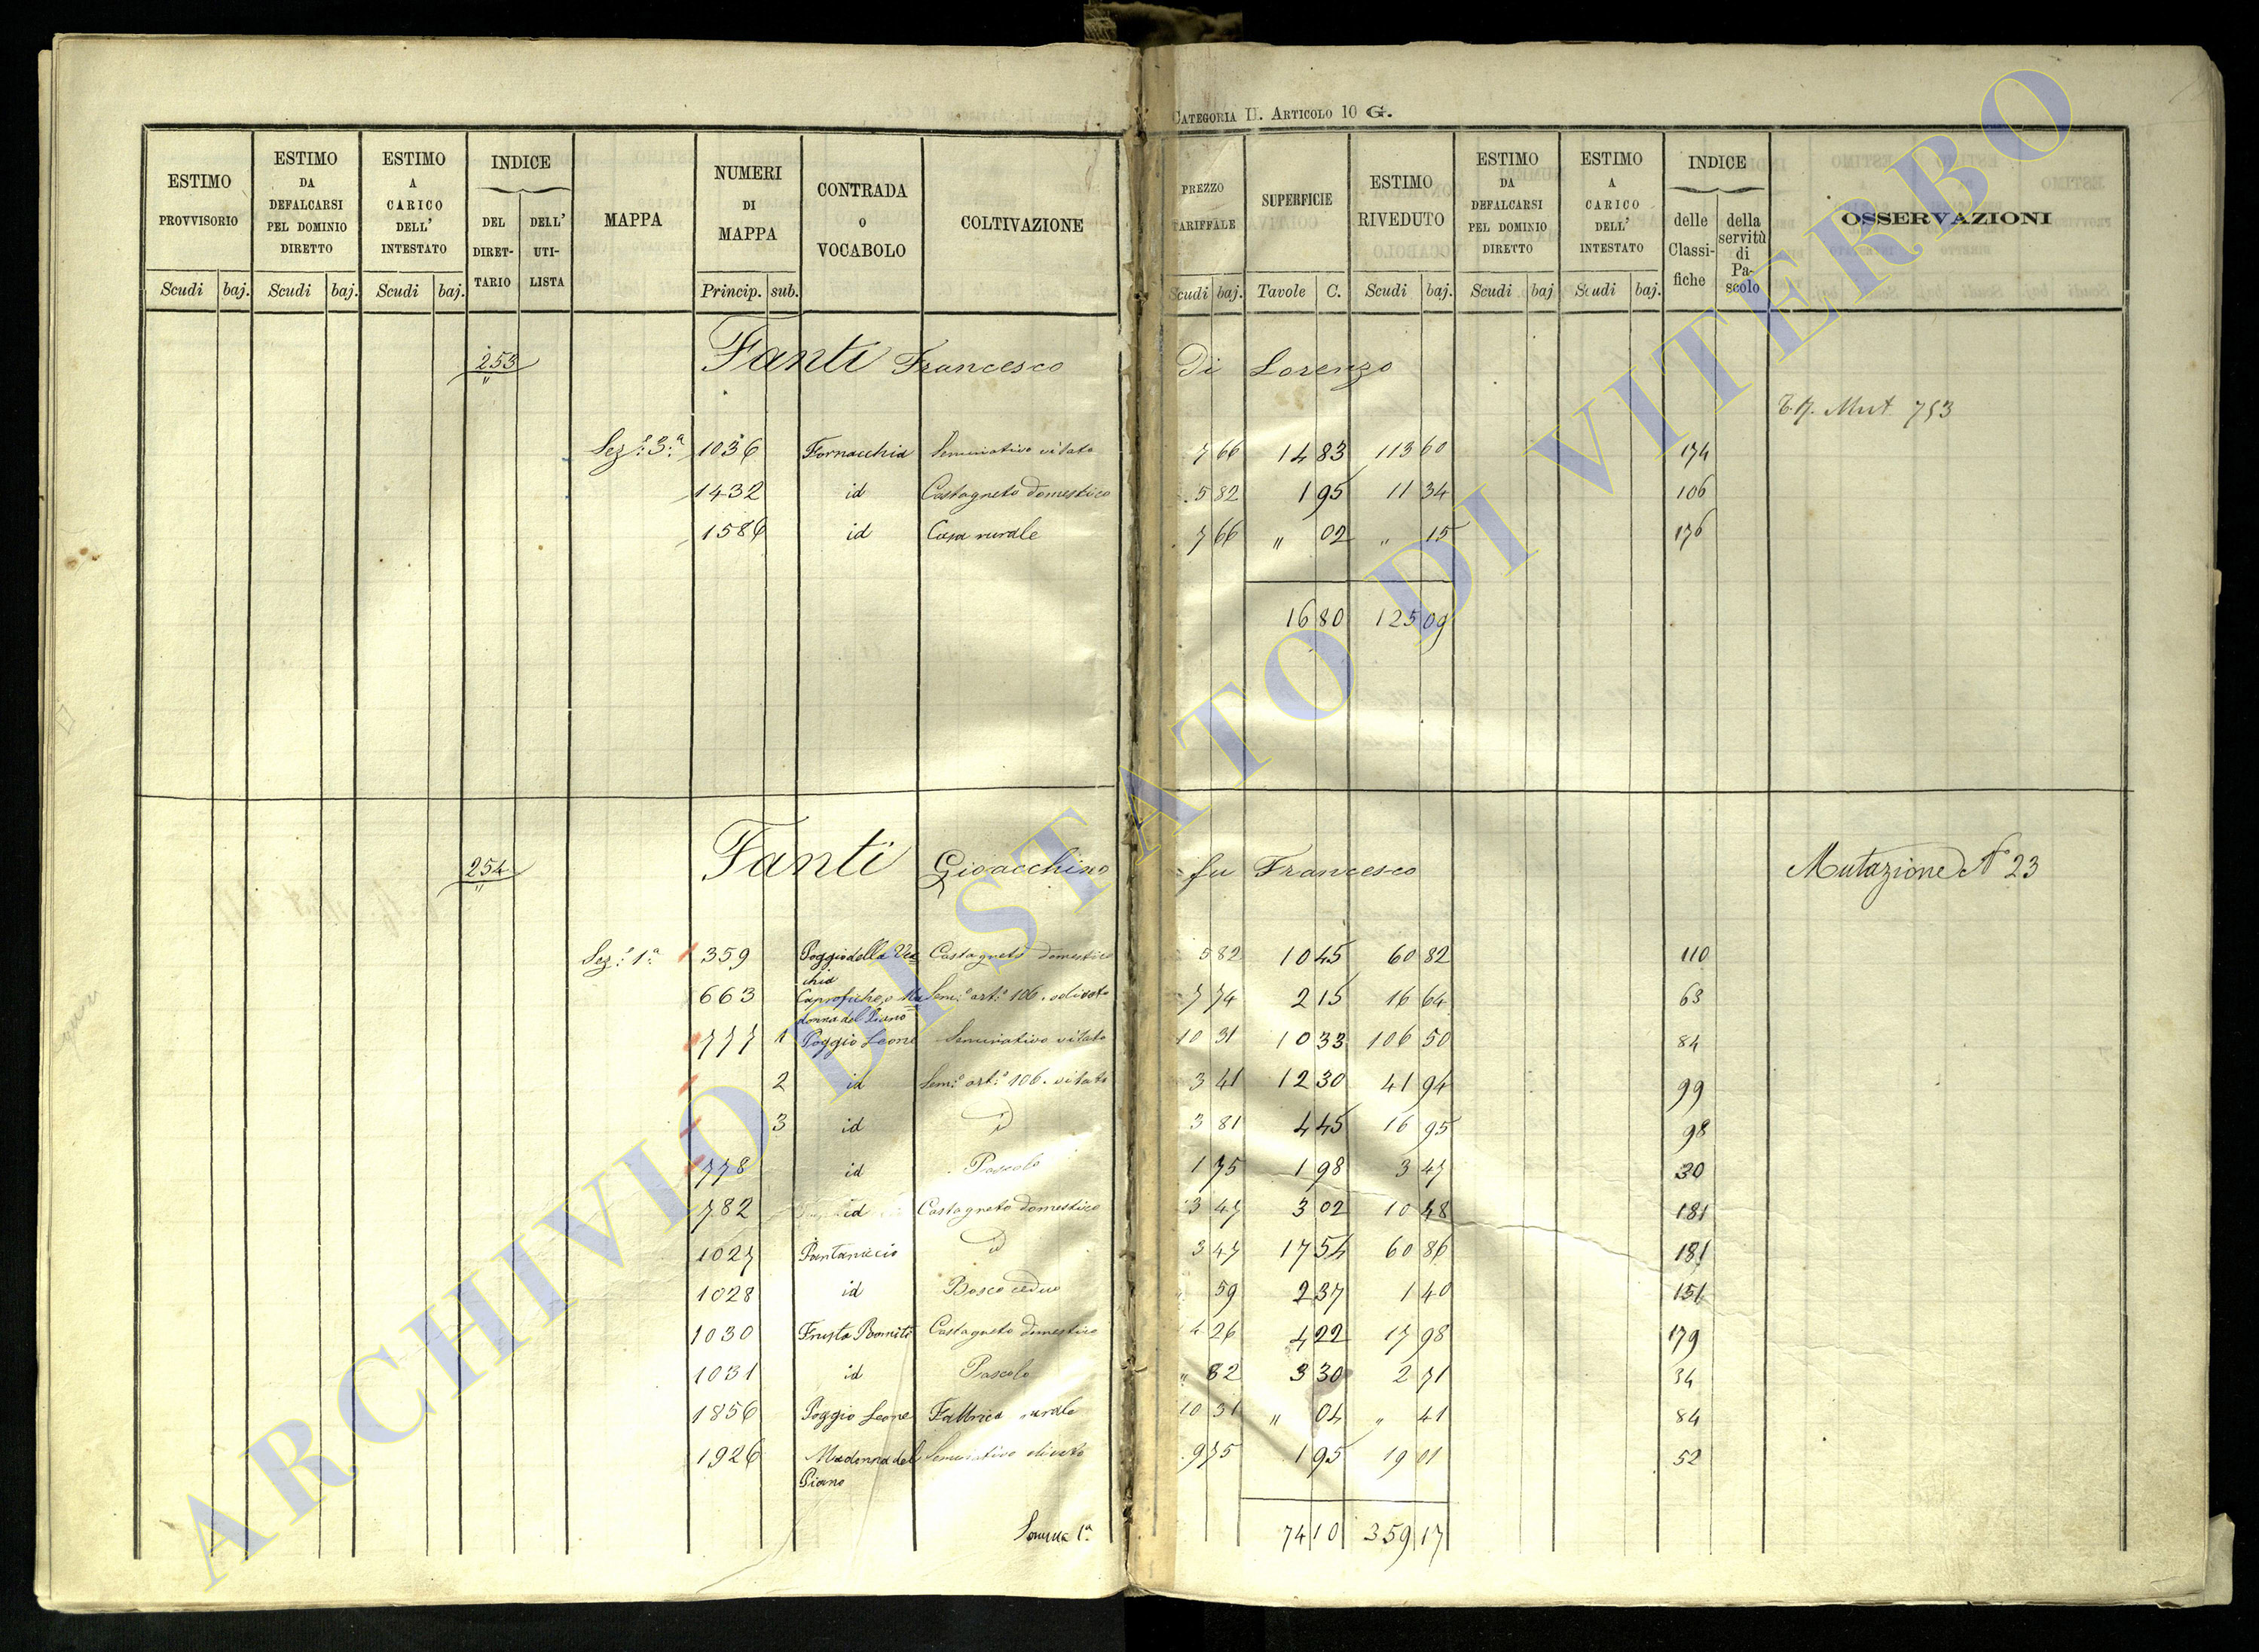 CATEGORIA II. ARTICOLO 10 G.
ESTIMO PROVVISORIO Scudi baj.
ESTIMO DA DEFALCARSI PEL DOMINIO DIRETTO Scudi baj.
ESTIMO A CARICO DELL' INTESTATO Scudi baj.
INDICE DEL DIRET-TARIO DELL' UTI-LISTA
MAPPA
NUMERI DI MAPPA Princip. sub.
CONTRADA o VOCABOLO
COLTIVAZIONE
PREZZO TARIFFALE Scudi baj.
SUPERFICIE Tavole C.
ESTIMO RIVEDUTO Scudi baj.
ESTIMO DA DEFALCARSI PEL DOMINIO DIRETTO Scudi baj
ESTIMO A CARICO DELL' INTESTATO Scudi baj.
INDICE delle Classi-fiche della servitù di Pa-scolo
OSSERVAZIONI
253 Fanti Francesco di Lorenzo
Mut. 753
Sez: 3:a 1036 Fornacchia Seminativo vitato 7 66 14 83 113 60 174
1432 id Castagneto domestico 5 82 1 95 11 34 106
1586 id Casa rurale 7 66 " 02 " 15 176
16 80 125 09
254 Fanti Gioacchino fu Francesco Mutazione N° 23
Sez: 1:a 359 Poggio della Vec=
chia Castagneto domestico 5 82 10 45 60 82 110
663 Caprofiche, o Ma=
donna del Piano Sem:o art:o 106. olivato 7 74 2 15 16 64 63
777 1 Poggio Leone Seminativo vitato 10 31 10 33 106 50 84
2 id Sem:o art:o 106. vitato 3 41 12 30 41 94 99
3 id id 3 81 4 45 16 95 98
778 id Pascolo 1 75 1 98 3 47 30
782 id Castagneto domestico 3 47 3 02 10 48 181
1027 Pantanicio id 3 47 17 54 60 86 181
1028 id Bosco ceduo " 59 2 37 1 40 151
1030 Frusta Castagneto domestico 4 26 4 22 17 98 179
1031 id Pascolo " 82 3 30 2 71 34
1856 Poggio Leone Fabbrica rurale 10 31 " 04 " 41 84
1926 Madonna del
Piano Seminativo olivato 9 75 1 95 19 01 52
Somma 1a 74 10 359 17
ARCHIVIO DI STATO DI VITERBO